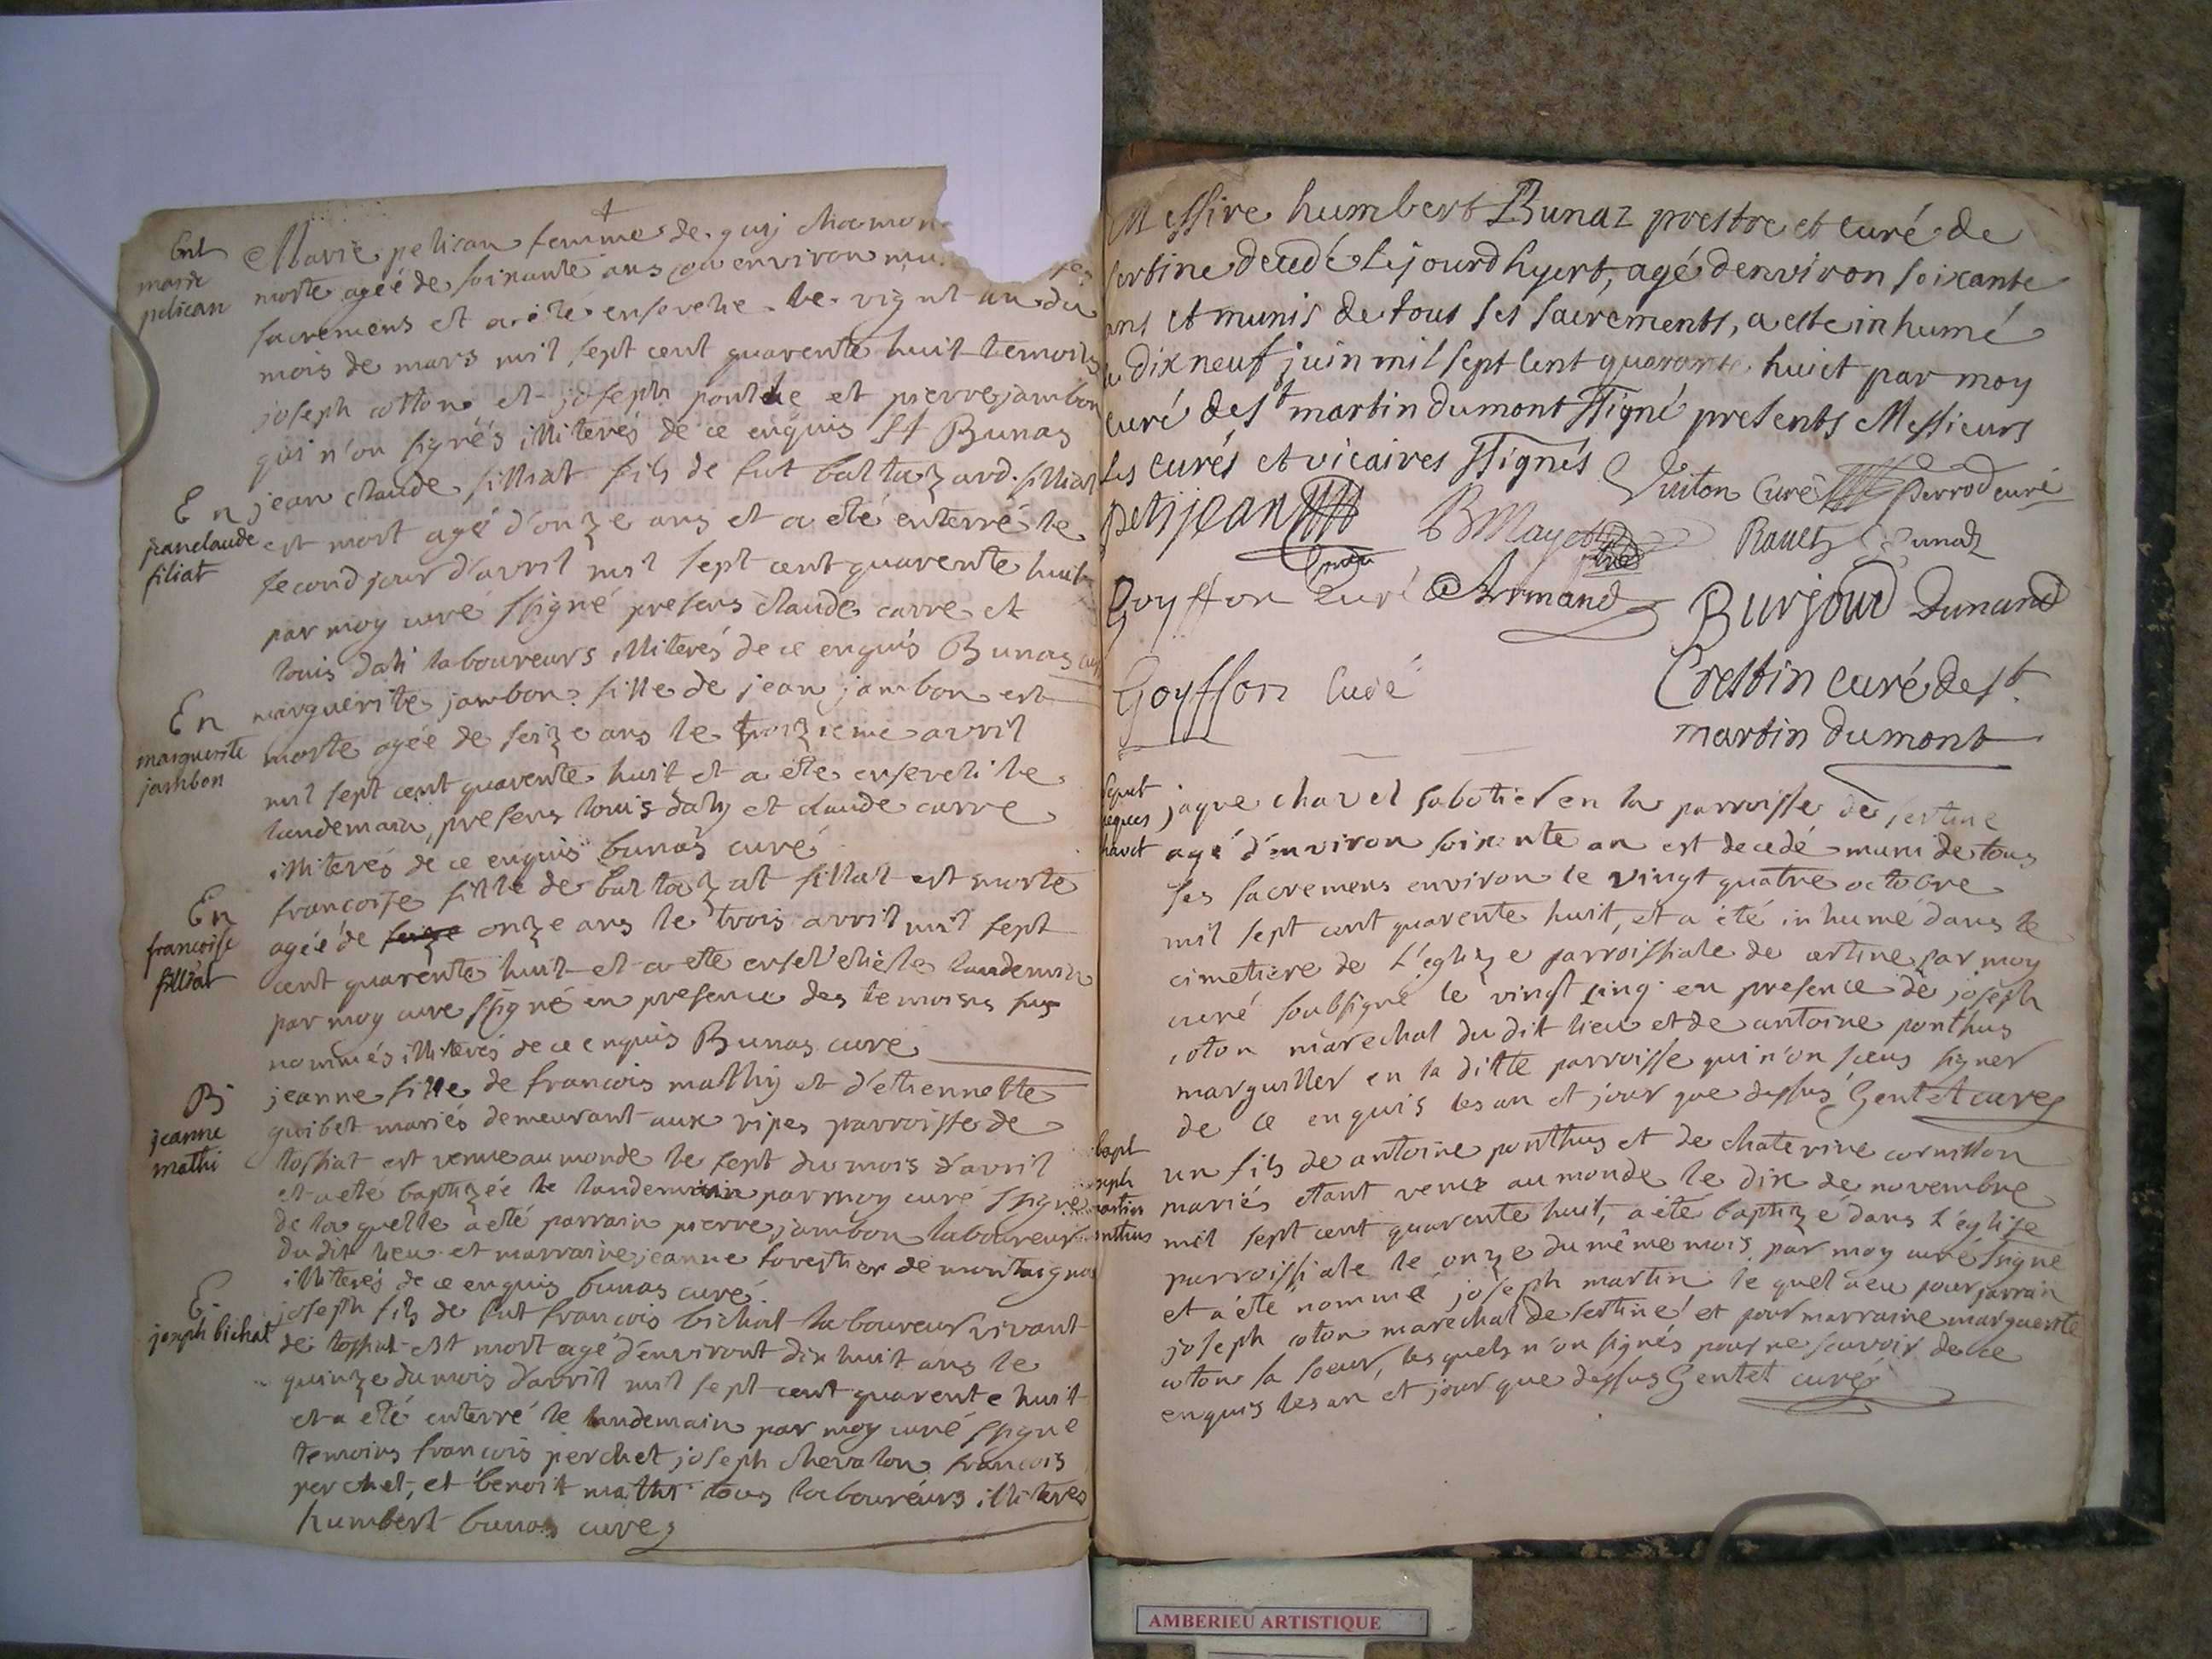 Ent
marie
pelican
Marie pelican femme de guy chamon
morte agée de soixante ans ou environ mu
sacremens et a été ensevelie le vignt-un du
mois de mars mil sept cent quarente huit temoins
joseph cotton et joseph pont et pierre jambon
qui n'on signés illiterés de ce enquis Bunas
En
jeanclaude
filiat
jean claude filliat fils de fut baltazard filliat
est mort agé d'onze ans et a eté enterré le
second jour d'avril mil sept cent quarente huit
par moy curé ssigné presens claude carre et
louis dati laboureurs illiterés de ce enquis Bunas
En
marguerite
jambon
marguerite jambon fille de jean jambon est
morte agée de seize ans le troizieme avril
mil sept cent quarente huit et a ete enseveli le
landemain, presens louis daty et claude carre
illiterés de ce enquis bunas curé
En
francoise
filliat
francoise fille de baltazat filliat est morte
agée de seize onze ans le trois avril mil sept
cent quarente huit et a ete ensevelie le landemin
par moy cure ssigné en presence des temoins sus
nommés illiterés de ce enquis Bunas curé
B
jeanne
mathi
jeanne fille de francois mathy et d'etiennette
guibet mariés demeurant aux ripes parroisse de
tossiat est venue au monde le sept du mois d'avril
et a eté baptizée le landemain par moy curé ssigné
de la quelle a eté parrain pierre jambon laboureur
dudit lieu et marraine jeanne forestier de montagna
illiterés de ce enquis bunas curé
E
joseph bichat
joseph fils de fut francois bichat laboureur vivant
de tossiat est mort agé d'environt dix huit ans le
quinze du mois d'avril mil sept cent quarente huit
et a eté enterré le landemain par moy curé ssigné
temoins francois perchet joseph chevalon francois
perchet, et benoit mathi tous laboureurs illiteres
humbert bunas cure
Messire humbert Bunaz prestre et curé de
sertine decedé le jourd hyert, agé denviron soixante
ans et munis de tous ses sacrements, a este inhumé
dix neuf juin mil sept cent quarante huict par moy
curé de st martin dumont ssigné presents Messieurs
les curés et vicaires ssignés
Vuiton curé Perrod curé
petijean B Mayet Ravet Bunaz
Goyffon curé Armand Burjoud Dunand
Goyffon Curé
Crestin curé de st
martin dumont
jaque chavet sabotier en la parroisse de sertine
agé d'environ soixente an est decedé muni de tous
ses sacremens environ le vingt quatre octobre
mil sept cent quarente huit, et a été inhumé dans le
cimetiere de l'eglize parroissiale de certine par moy
curé soubsigné le vingt cinq en presence de joseph
coton marechal du dit lieu et de antoine ponthus
marguiller en la ditte parroisse qui n'on sceus signer
de ce enquis les an et jour que dessus Gentet cure
un fils de antoine ponthus et de chaterine cornillon
mariés etant venus au monde le dix de novembre
mil sept cent quarente huit, a été baptizé dans l'eglise
parroissiale le onze du même mois par moy curé ssigné
et a été nommé joseph martin le quel a eu pour parrain
joseph coton marechal de sertine et pour marraine marguerite
coton sa soeur, les quels n'on signés pour ne scavoir de ce
enquis les an et jour que dessus Gentet curé
AMBERIEU ARTISTIQUE